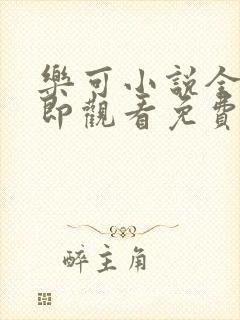 樂可小說全
即觀看免費
醉主角